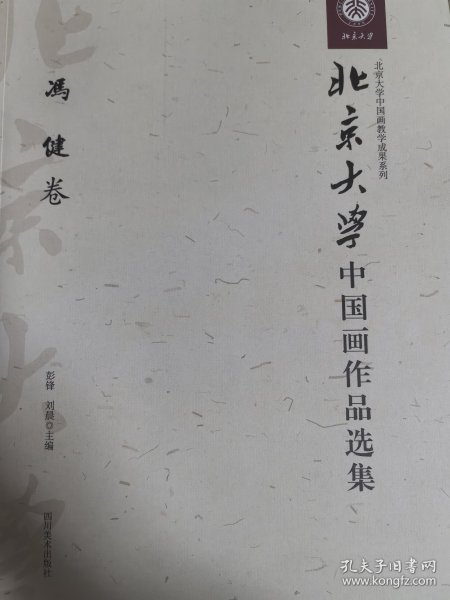 北京大学
·北京大学中国画教学成果系列
北京大学中国画作品选集
冯健卷
彭锋 刘晨◎主编
四川美术出版社
孔夫子旧书网
www.kongfz.com